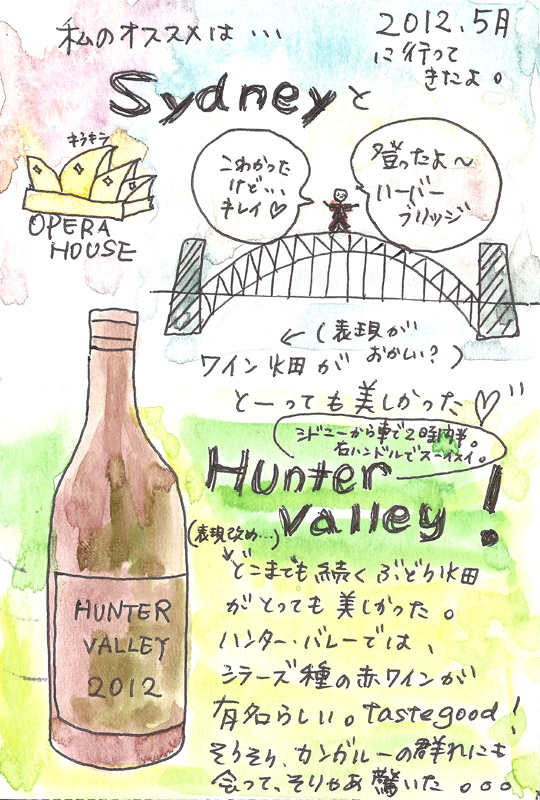 私のオススメは...
2012.5月
に行って
きたよ。
Sydneyと
キラキラ
OPERA
HOUSE
こわかった
けど...
キレイ♡
登ったよ〜
ハーバー
ブリッジ
←(表現が
おかしい?)
ワイン畑が
とーっても美しかった♡"
シドニーから車で2時間半。
右ハンドルでスーイスイ。
Hunter
Valley!
(表現改め...)
どこまでも続くぶどう畑
がとっても美しかった。
ハンター・バレーでは、
シラーズ種の赤ワインが
有名らしい。taste good!
そうそう、カンガルーの群れにも
会って、そりゃあ驚いた。。。
HUNTER
VALLEY
2012